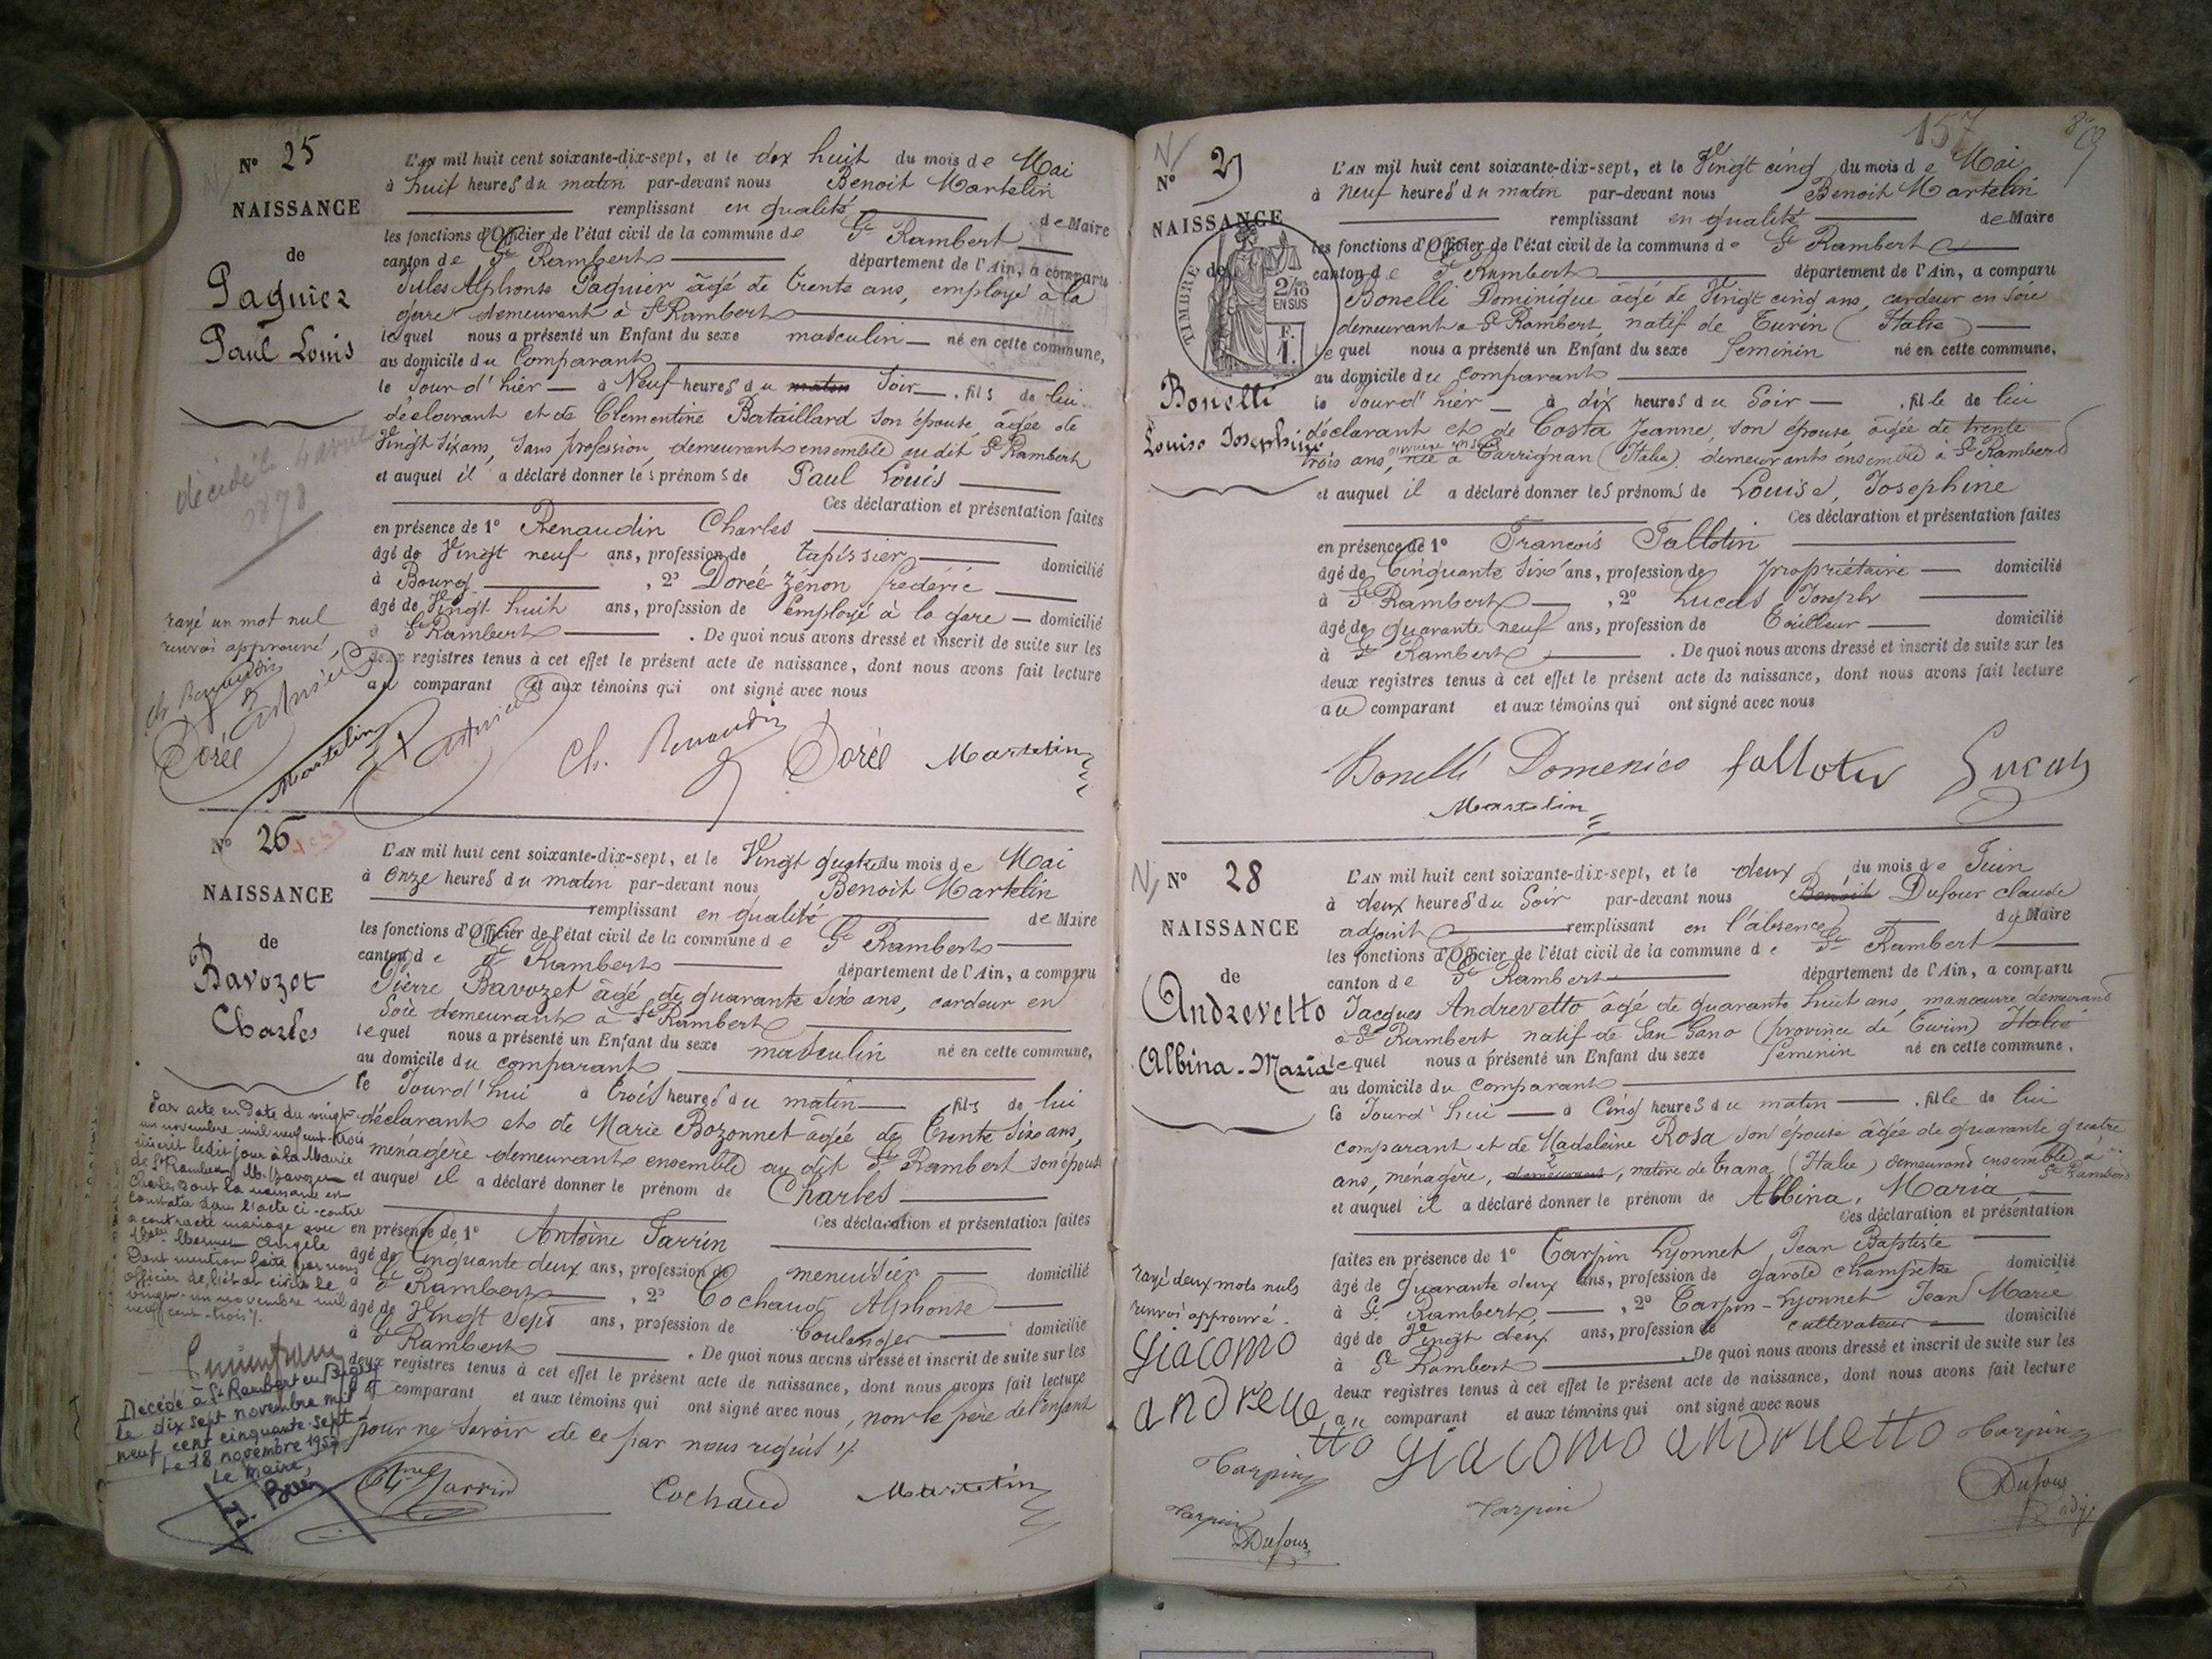 N° 25
NAISSANCE
de
Paguiez
Paul Louis
décédé le 4 avril
1878
rayé un mot nul
renvoi approuvé,
Ch. Renaudin
Dorée
Martelin
L'AN mil huit cent soixante-dix-sept, et le dix huit du mois de Mai
à huit heures du matin par-devant nous Benoit Martelin
remplissant en qualité de Maire
les fonctions d'Officier de l'état civil de la commune de St Rambert
canton de St Rambert département de l'Ain, a comparu
Jules Alphonse Paguier âgé de trente ans, employé à la
gare demeurant à St Rambert
lequel nous a présenté un Enfant du sexe masculin né en cette commune,
au domicile du Comparant
le Jour d'hier à Neuf heures du matin Soir, fils de lui
déclarant et de Clementine Bataillard son épouse, âgée de
Vingt six ans, sans profession, demeurants ensemble au dit St Rambert
et auquel il a déclaré donner les prénoms de Paul Louis
Ces déclaration et présentation faites
en présence de 1° Renaudin Charles
âgé de Vingt neuf ans, profession de tapissier domicilié
à Bourg, 2° Dorée Zénon frédéric
âgé de Vingt huit ans, profession de Employé à la gare domicilié
à St Rambert. De quoi nous avons dressé et inscrit de suite sur les
deux registres tenus à cet effet le présent acte de naissance, dont nous avons fait lecture
au comparant et aux témoins qui ont signé avec nous
Ch. Renaudin Dorée Martelin
N° 26
NAISSANCE
de
Bavozet
Charles
Par acte en Date du vingt-
un novembre mil neuf cent-trois
inscrit ledit jour à la Mairie
de St Rambert M. Bavozet
Charles dont la naissance est
constatée dans l'acte ci-contre
a contracté mariage avec
Angèle
Dont mention faite par nous
officier de l'état civil le
vingt-un novembre mil
neuf cent-trois.
Décédé à St Rambert en Bugey
le dix sept novembre mil
neuf cent cinquante-sept
Le 18 novembre 1957
Le Maire,
L'AN mil huit cent soixante-dix-sept, et le Vingt quatre du mois de Mai
à Onze heures du matin par-devant nous Benoit Martelin
remplissant en qualité de Maire
les fonctions d'Officier de l'état civil de la commune de St Rambert
canton de St Rambert département de l'Ain, a comparu
Pierre Bavozet âgé de quarante Six ans, cardeur en
Soie demeurant à St Rambert
lequel nous a présenté un Enfant du sexe masculin né en cette commune,
au domicile du comparant
le Jourd'hui à trois heures du matin fils de lui
déclarant et de Marie Bozonnet âgée de Trente Six ans,
ménagère demeurants ensemble au dit St Rambert son épouse
et auquel il a déclaré donner le prénom de Charles
Ces déclaration et présentation faites
en présence de 1° Antoine Farrin
âgé de Cinquante deux ans, profession de menuisier domicilié
à St Rambert, 2° Cochaud Alphonse
âgé de Vingt Sept ans, profession de boulanger domicilié
à St Rambert. De quoi nous avons dressé et inscrit de suite sur les
deux registres tenus à cet effet le présent acte de naissance, dont nous avons fait lecture
au comparant et aux témoins qui ont signé avec nous, non le père de l'enfant
pour ne savoir de ce par nous requis
Cochaud Martelin
157
N° 27
NAISSANCE
de
TIMBRE
2/10
EN SUS
F.
1.
Bonelli
Louise Josephine
L'AN mil huit cent soixante-dix-sept, et le Vingt cinq du mois de Mai
à Neuf heures du matin par-devant nous Benoit Martelin
remplissant en qualité de Maire
les fonctions d'Officier de l'état civil de la commune de St Rambert
canton de St Rambert département de l'Ain, a comparu
Bonelli Dominique âgé de Vingt cinq ans, cardeur en Soie
demeurant à St Rambert, natif de Turin (Italie)
lequel nous a présenté un Enfant du sexe feminin né en cette commune,
au domicile du comparant
le Jourd'hier à dix heures du Soir, fille de lui
déclarant et de Costa Jeanne, son épouse, âgée de trente
trois ans, ouvrière en soie née à Carrignan (Italie) demeurants ensemble à St Rambert
et auquel il a déclaré donner les prénoms de Louise, Josephine
Ces déclaration et présentation faites
en présence de 1° Francois Fallotin
âgé de Cinquante Six ans, profession de propriétaire domicilié
à St Rambert, 2° Lucas Joseph
âgé de quarante neuf ans, profession de Toilleur domicilié
à St Rambert. De quoi nous avons dressé et inscrit de suite sur les
deux registres tenus à cet effet le présent acte de naissance, dont nous avons fait lecture
au comparant et aux témoins qui ont signé avec nous
Bonelli Domenico fallotin Lucas
Martelin
N° 28
NAISSANCE
de
Andrevetto
Albina-Maria
rayé deux mots nuls
renvoi approuvé.
giacomo
andrevetto
Tarpin
Tarpin
Dufour
L'AN mil huit cent soixante-dix-sept, et le deux du mois de Juin
à deux heures du Soir par-devant nous Benoit Dufour Claude
adjoint remplissant en l'absence du Maire
les fonctions d'Officier de l'état civil de la commune de St Rambert
canton de St Rambert département de l'Ain, a comparu
Jacques Andrevetto âgé de quarante huit ans, manoeuvre demeurant
à St Rambert natif de San Gano (province de Turin) Italie
lequel nous a présenté un Enfant du sexe feminin né en cette commune,
au domicile du Comparant
le Jourd'hui à Cinq heures du matin, fille de lui
comparant et de Madeleine Rosa son épouse âgée de quarante quatre
ans, ménagère, demeurant, native de Trana (Italie) demeurant ensemble à St Rambert
et auquel il a déclaré donner le prénom de Albina, Maria
Ces déclaration et présentation
faites en présence de 1° Tarpin Lyonnet, Jean Baptiste
âgé de quarante deux ans, profession de garde champetre domicilié
à St Rambert, 2° Tarpin-Lyonnet Jean Marie
âgé de Vingt deux ans, profession de cultivateur domicilié
à St Rambert. De quoi nous avons dressé et inscrit de suite sur les
deux registres tenus à cet effet le présent acte de naissance, dont nous avons fait lecture
au comparant et aux témoins qui ont signé avec nous
giacomo andruetto Tarpin
Tarpin Dufour
adj